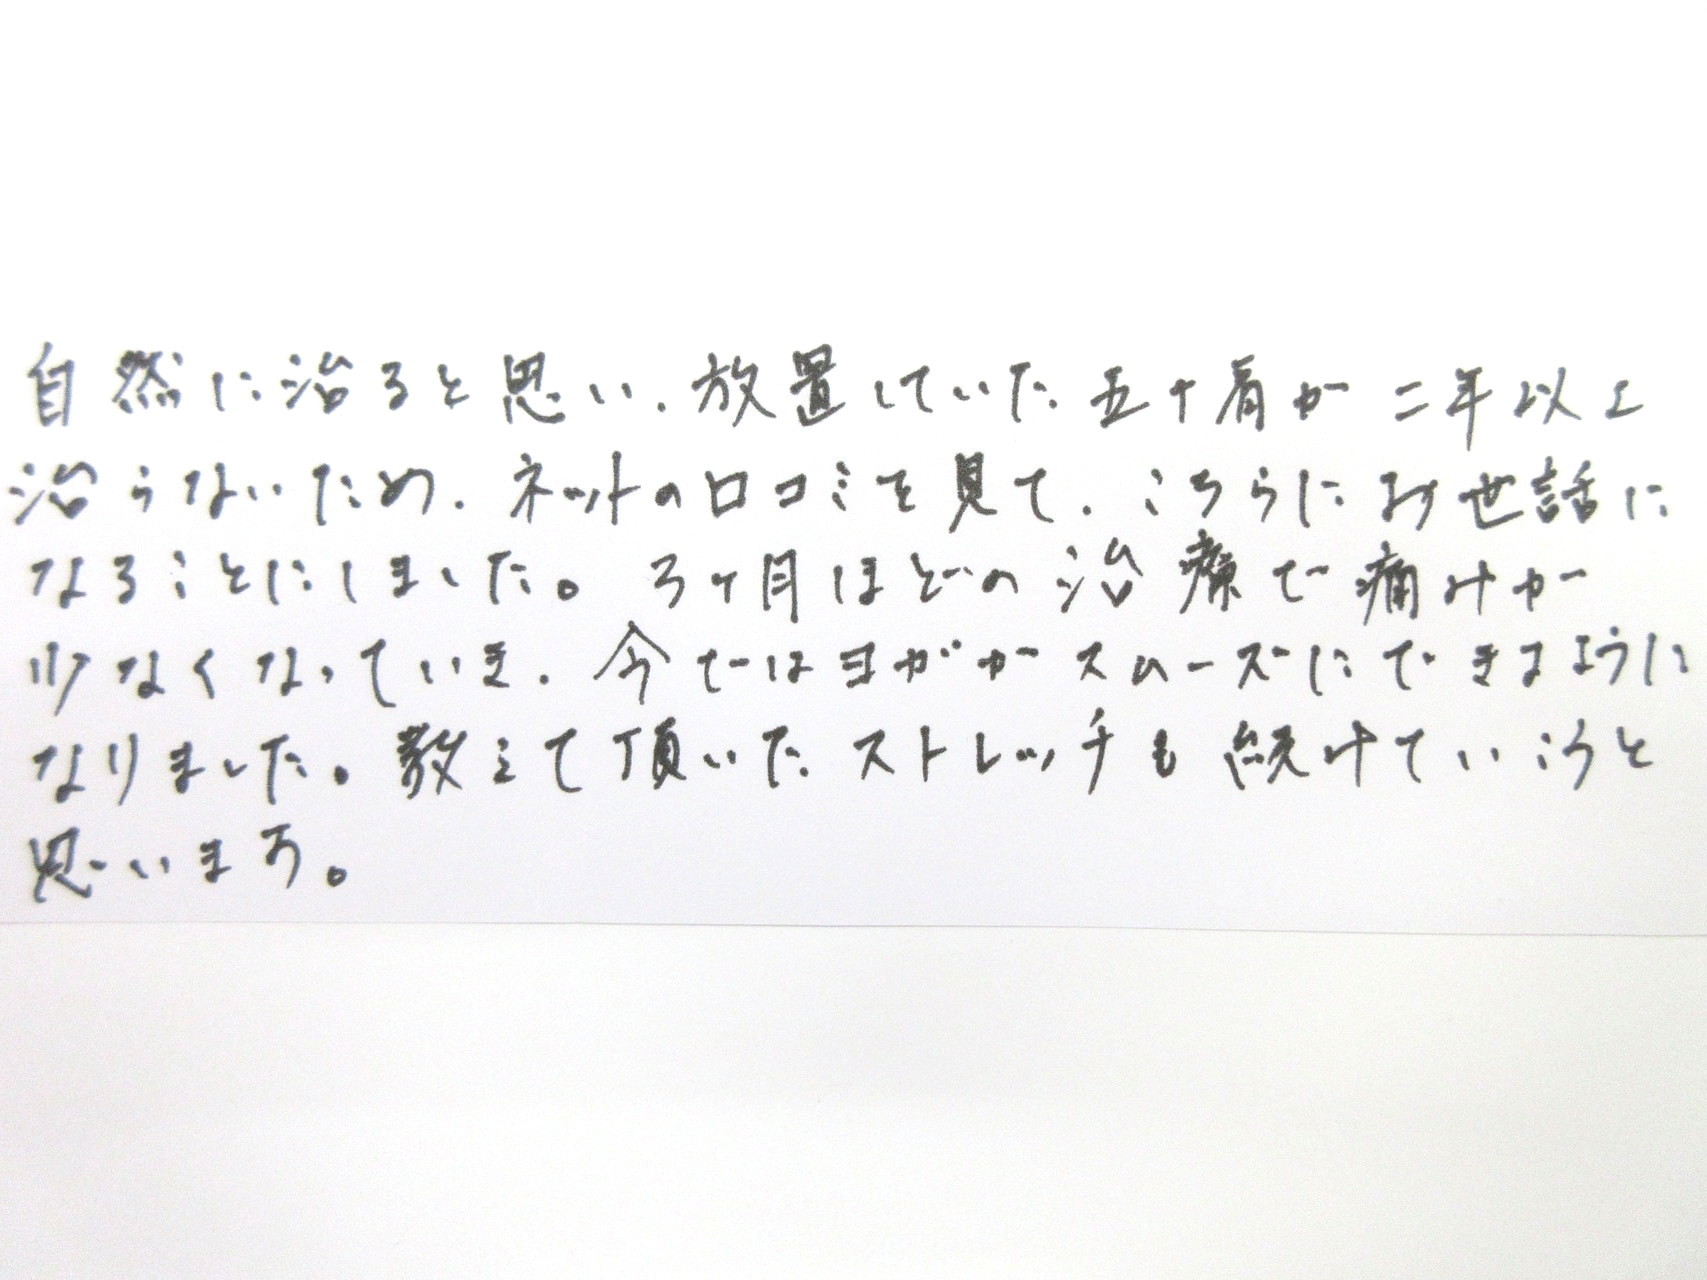 自然に治ると思い、放置していた五十肩が二年以上
治らないため、ネットの口コミを見て、こちらにお世話に
なることにしました。3ヶ月ほどの治療で痛みが
少なくなっていき、今ではヨガがスムーズにできるように
なりました。教えて頂いたストレッチも続けていこうと
思います。